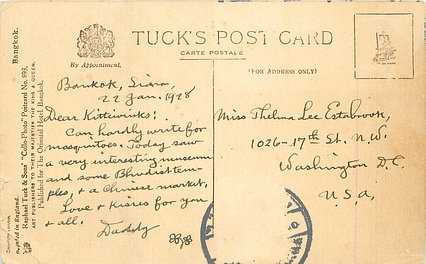 By Appointment.
TUCK'S POST CARD
CARTE POSTALE
(FOR ADDRESS ONLY)
Bangkok.
Raphael Tuck & Sons' "Collo-Photo" Postcard No. 893.
ART PUBLISHERS TO THEIR MAJESTIES THE KING & QUEEN.
Published for The Oriental Hotel, Bangkok.
Printed in England.
Bankok, Siam,
22 Jan. 1928
Dear Kittiwinks!
Can hardly write for
mosquitoes. Today saw
a very interesting museum
and some Bhudist tem-
ples, & a Chinese market,
Love & kisses for you
& all.
Daddy
Miss Thelma Lee Estabrook,
1026-17th St. N.W.
Washington D.C.
U.S.A.